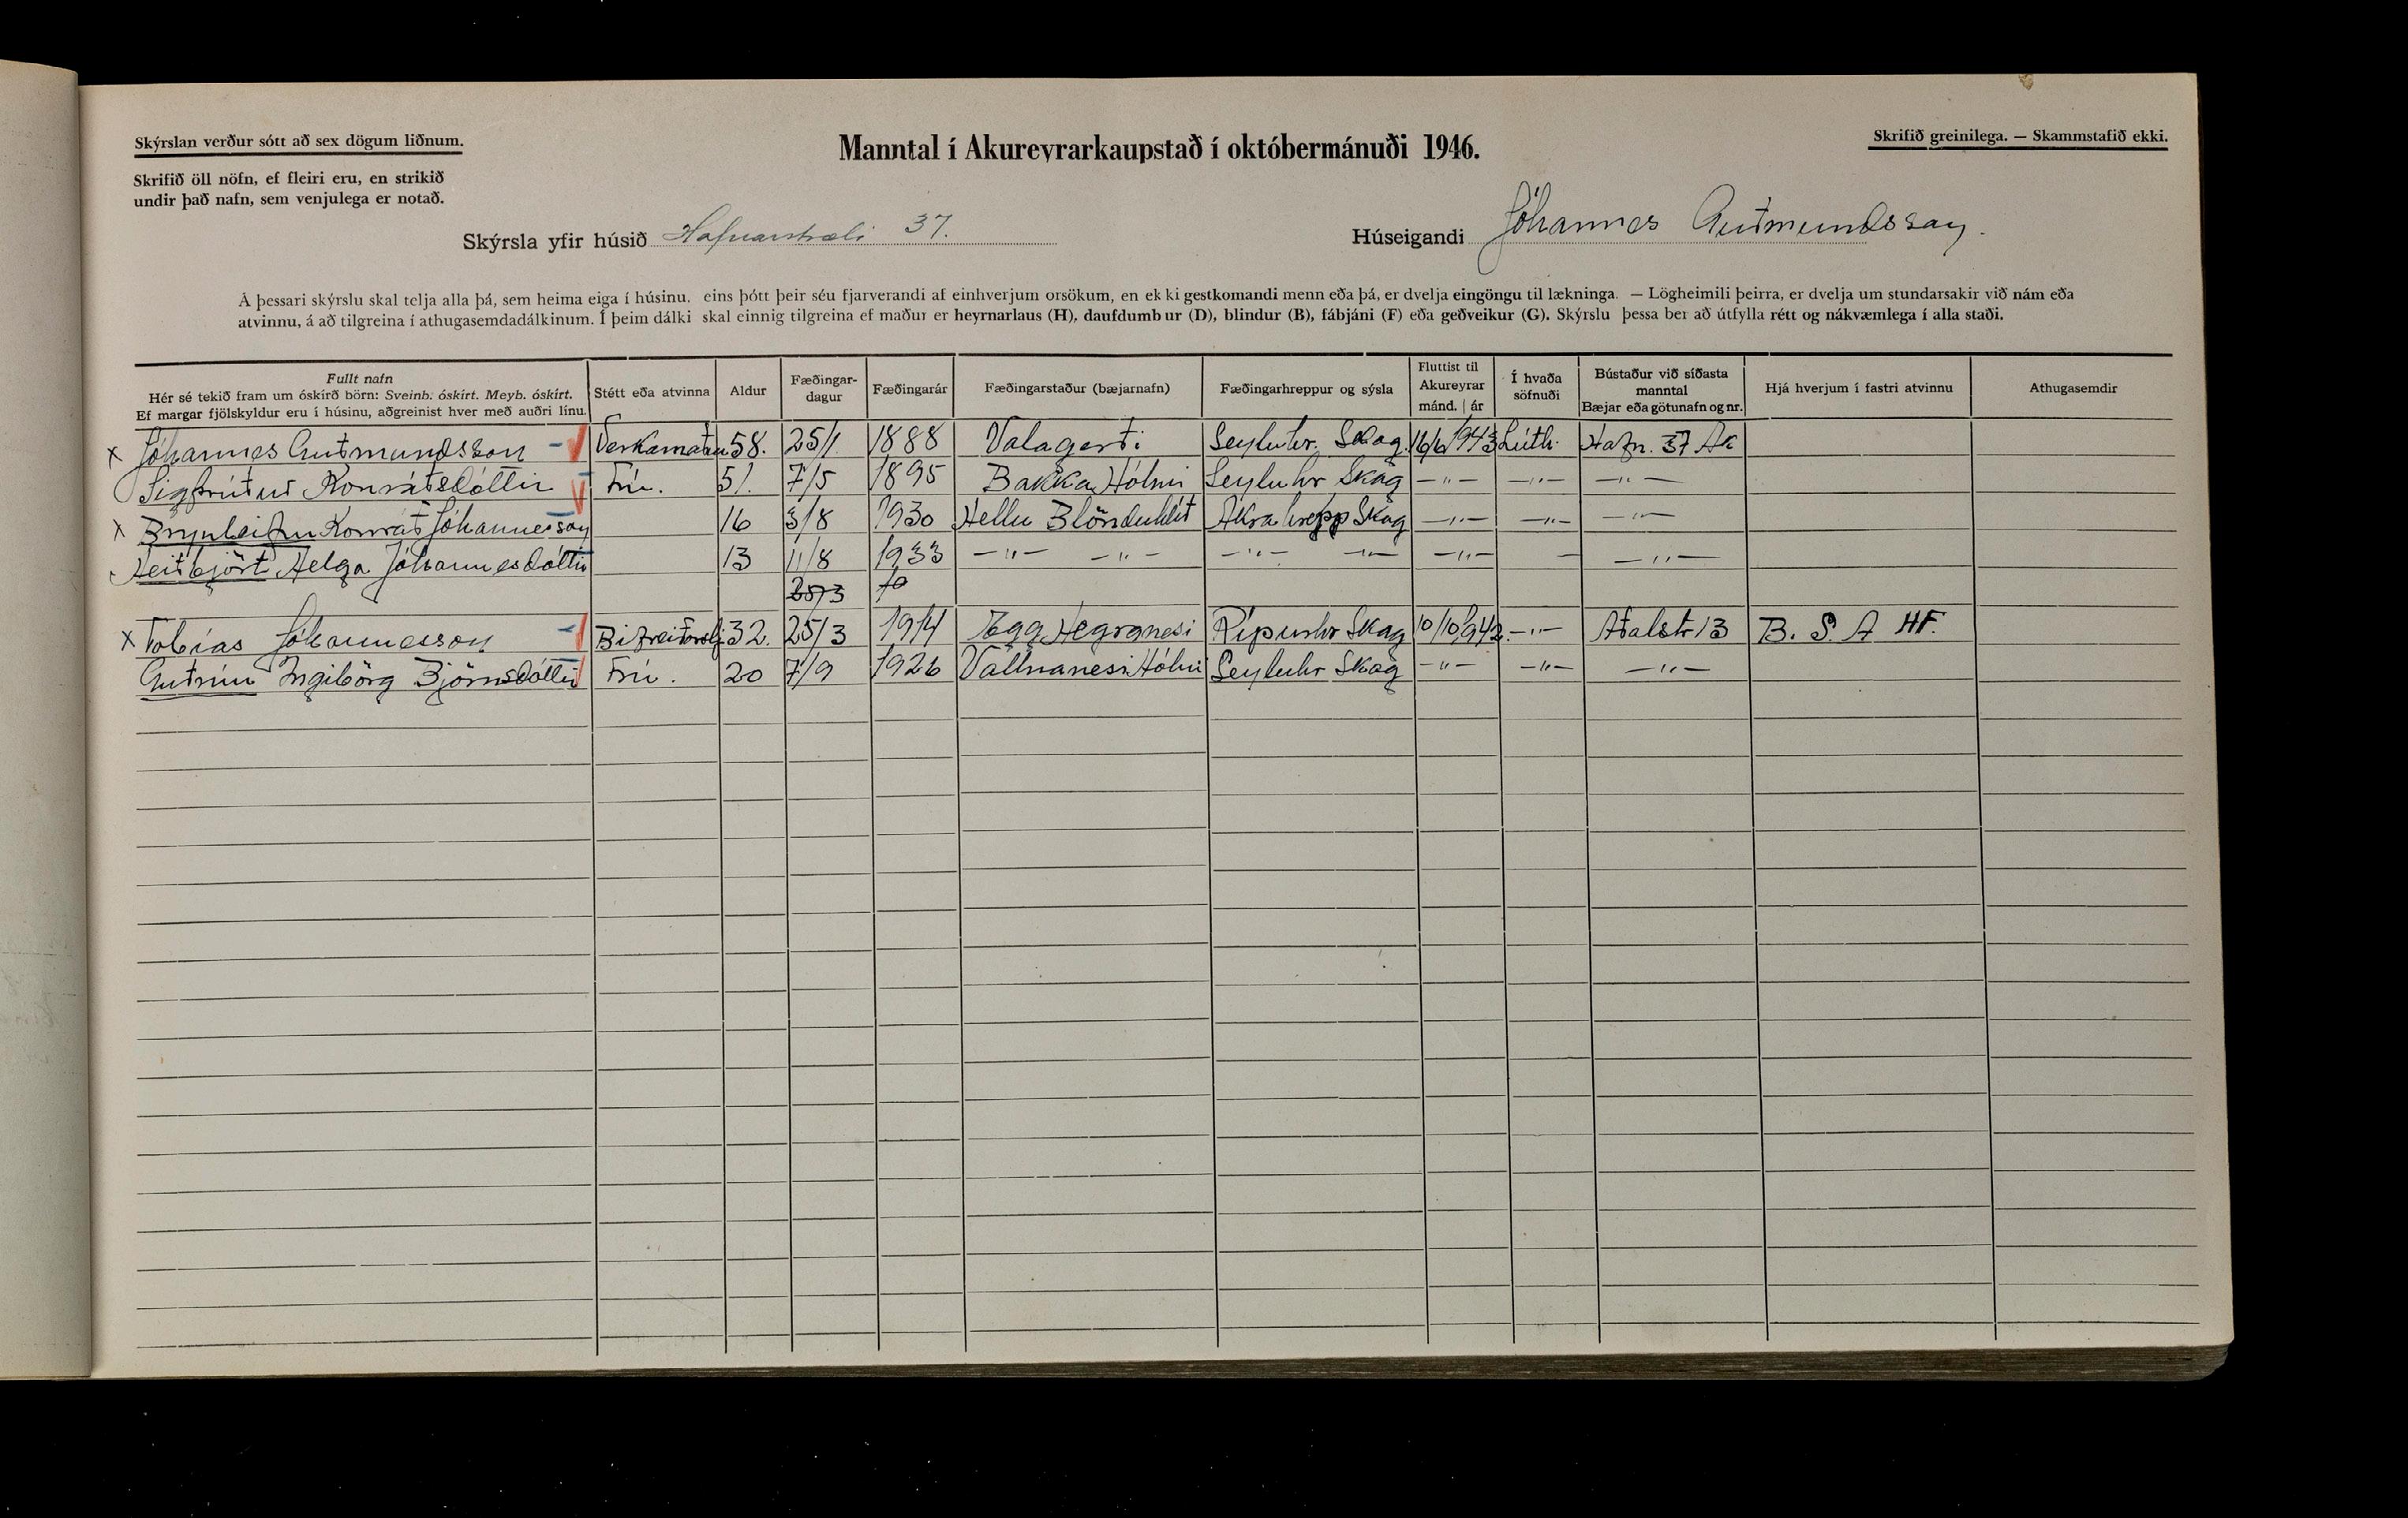 Skýrslan verður sótt að sex dögum liðnum.
Manntal í Akureyrarkaupstað í októbermánuði 1946.
Skrifið greinilega. — Skammstafið ekki.
Skrifið öll nöfn, ef fleiri eru, en strikið
undir það nafn, sem venjulega er notað.
Skýrsla yfir húsið Hafnarstræti 37.
Húseigandi Jóhannes Guðmundsson.
Á þessari skýrslu skal telja alla þá, sem heima eiga í húsinu, eins þótt þeir séu fjarverandi af einhverjum orsökum, en ekki gestkomandi menn eða þá, er dvelja eingöngu til lækninga. — Lögheimili þeirra, er dvelja um stundarsakir við nám eða
atvinnu, á að tilgreina í athugasemdadálkinum. Í þeim dálki skal einnig tilgreina ef maður er heyrnarlaus (H), daufdumbur (D), blindur (B), fábjáni (F) eða geðveikur (G). Skýrslu þessa ber að útfylla rétt og nákvæmlega í alla staði.
Fullt nafn
Hér sé tekið fram um óskírð börn: Sveinb. óskírt. Meyb. óskírt.
Ef margar fjölskyldur eru í húsinu, aðgreinist hver með auðri línu.
Stétt eða atvinna
Aldur
Fæðingar-
dagur
Fæðingarár
Fæðingarstaður (bæjarnafn)
Fæðingarhreppur og sýsla
Fluttist til
Akureyrar
mánd. | ár
Í hvaða
söfnuði
Bústaður við síðasta
manntal
Bæjar eða götunafn og nr.
Hjá hverjum í fastri atvinnu
Athugasemdir
x Jóhannes Guðmundsson Verkamaður 58. 25/1 1888 Valagerði Seyluhr. Skag. 16/6 1943 Lúth. Hafn. 37 Ak
Sigþrúður Konráðsdóttir Frú. 51. 7/5 1895 Bakka Hólmi Seyluhr Skag —"— —"— —"—
x Brynleifur Konráð Jóhannesson 16 3/8 1930 Hellu Blönduhlíð Akrahrepp Skag —"— —"— —"—
Heiðbjört Helga Jóhannesdóttir 13 11/8 1933 —"— —"— —"— —"— —"— — —"—
x Tobías Jóhannesson Bifreiðarstj. 32. 25/3 1914 Egg Hegranesi Rípurhr Skag 10/10 1942 —"— Aðalstr 13 B. S. A HF.
Guðrún Ingibörg Björnsdóttir Frú. 20 7/9 1926 Vallnanesi Hólmi Seyluhr Skag —"— —"— —"—